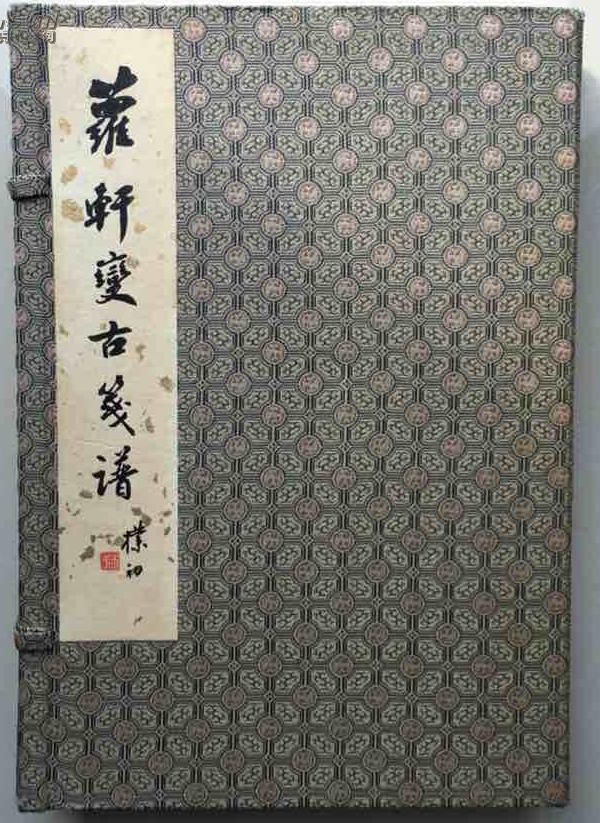 蘿軒變古箋譜
樸初